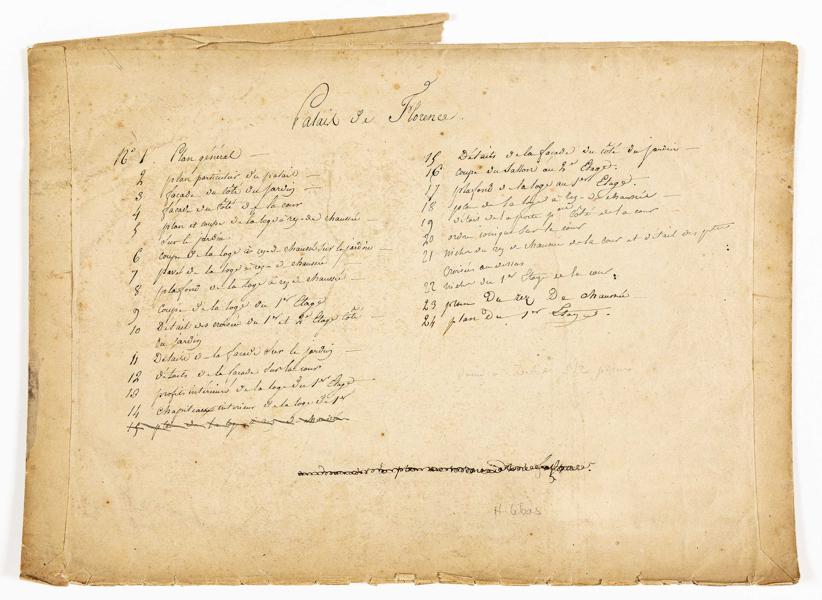 Palais de Florence.
N° 1. Plan général —
2 plan particulier du palais —
3 façade du côté du jardin —
4 façade du côté de la cour
5 plan et coupe de la loge à rez-de chaussée
sur le jardin
6 coupe de la loge à rez-de chaussée sur le jardin —
7 pavé de la loge à rez-de chaussée
8 plafond de la loge à rez-de chaussée —
9 Coupe de la loge du 1er Etage
10 Détail des croisées du 1er et 2e Etage côté
du jardin
11 Détails de la façade sur le jardin —
12 détails de la façade sur la cour
13 profils intérieurs de la loge du 1er Etage
14 chapiteaux intérieur de la loge du 1er
15 plan de la loge à rez de chaussée
15 Détails de la façade du côté du jardin —
16 coupe du Sallon au 2e Etage.
17 plafond de la loge au 1er Etage.
18 plan de la loge à rez-de chaussée —
19 détail de la porte côté de la cour
20 ordre ionique sur la cour
21 niche du rez de chaussée de la cour et détail des
croisées au dessus
22 niche du 1er Etage de la cour.
23 plan Du rez De chaussée —
24 plan Du 1er Etage.
H. Gbas